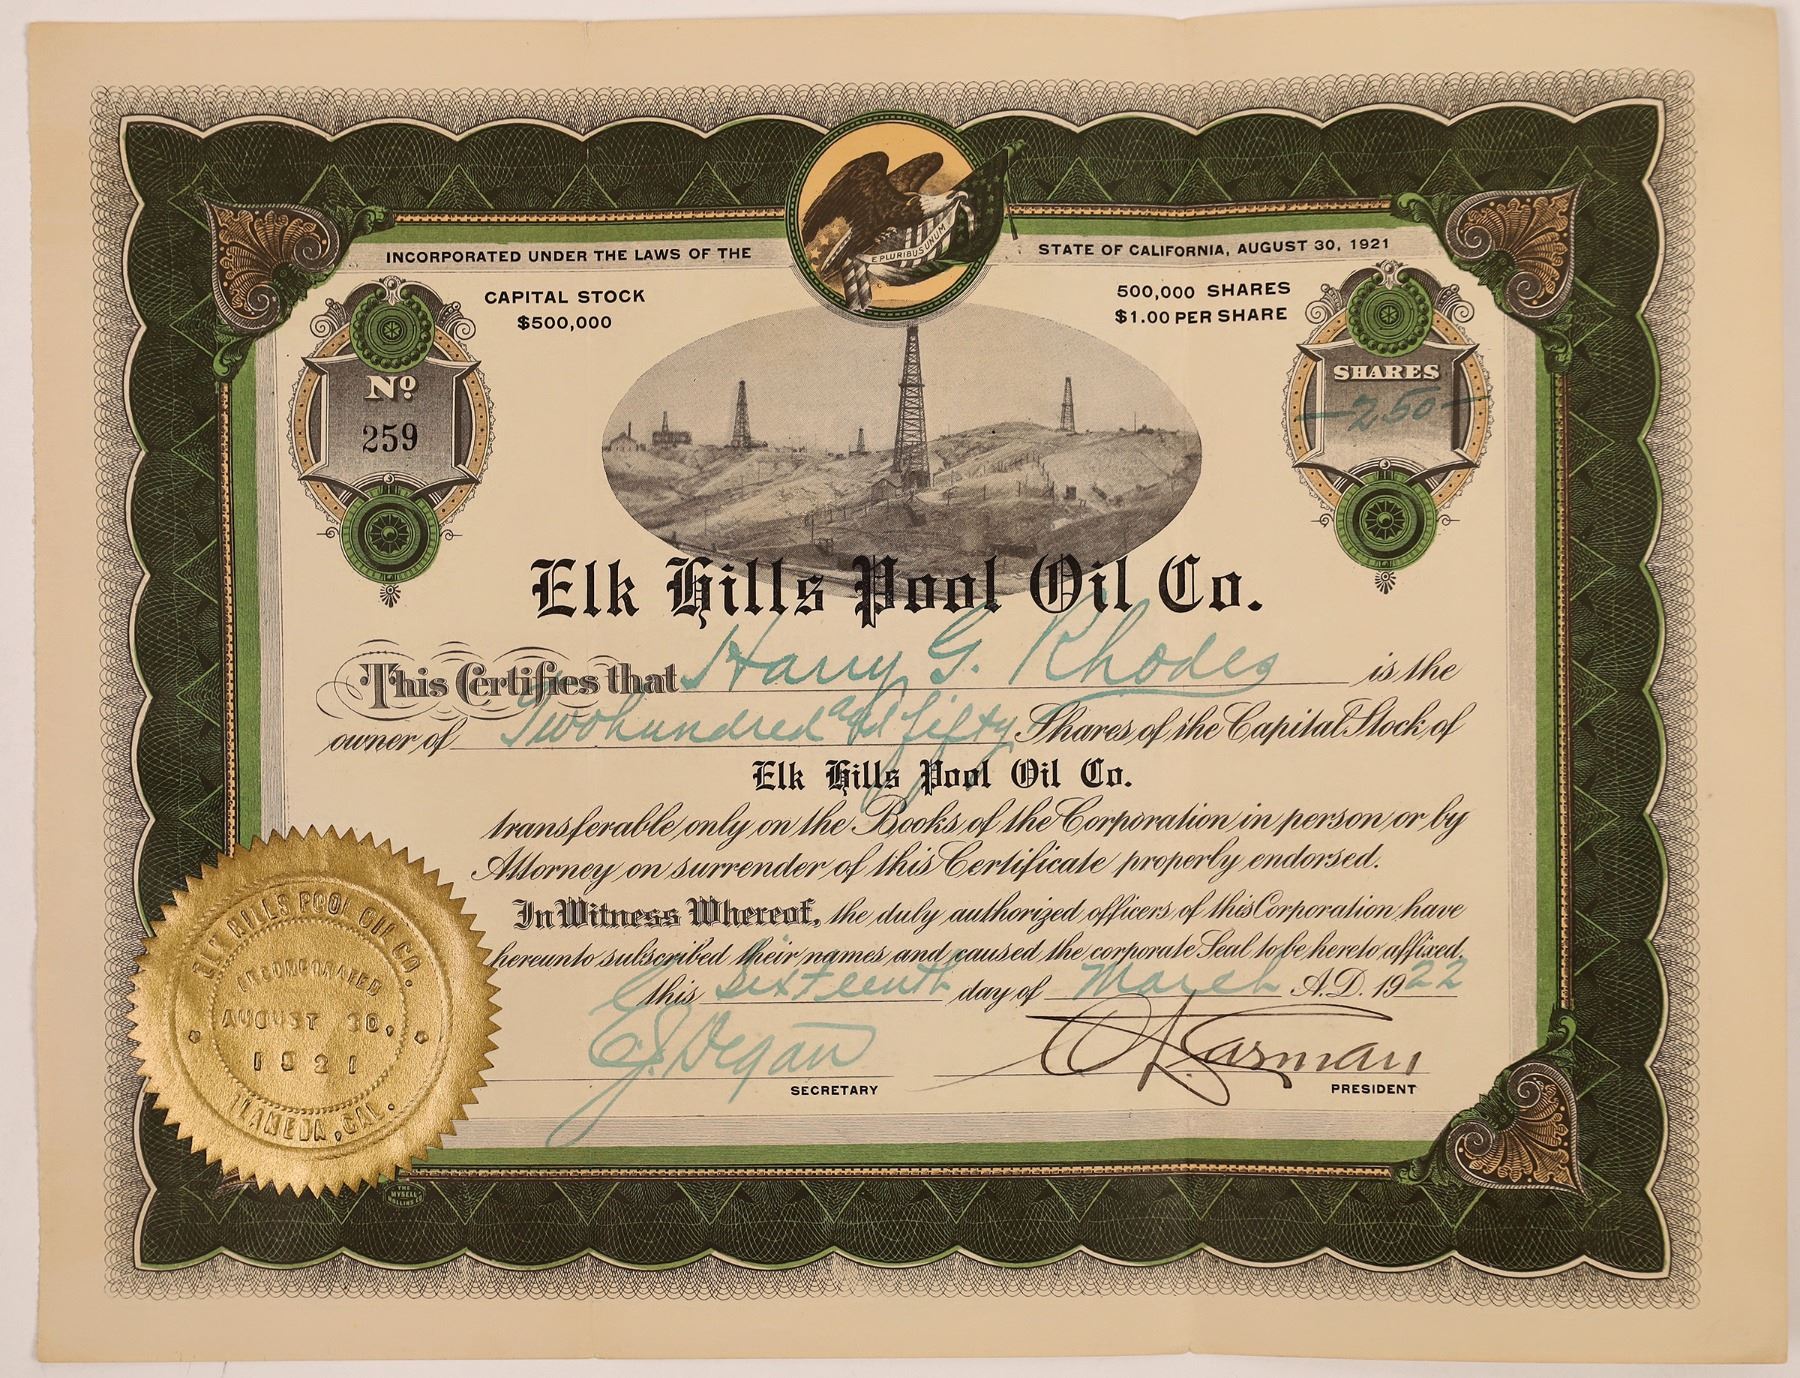 INCORPORATED UNDER THE LAWS OF THE STATE OF CALIFORNIA, AUGUST 30, 1921
E PLURIBUS UNUM
CAPITAL STOCK
$500,000
500,000 SHARES
$1.00 PER SHARE
No
259
SHARES
250
Elk Hills Pool Oil Co.
This Certifies that Harry G. Rhodes is the
owner of Two hundred and fifty Shares of the Capital Stock of
Elk Hills Pool Oil Co.
transferable only on the Books of the Corporation in person or by
Attorney on surrender of this Certificate properly endorsed.
In Witness Whereof, the duly authorized officers of this Corporation have
hereunto subscribed their names and caused the corporate Seal to be hereto affixed.
this Sixteenth day of March A.D. 1922
SECRETARY
PRESIDENT
ELK HILLS POOL OIL CO.
INCORPORATED
AUGUST 30,
1921
ALAMEDA, CAL.